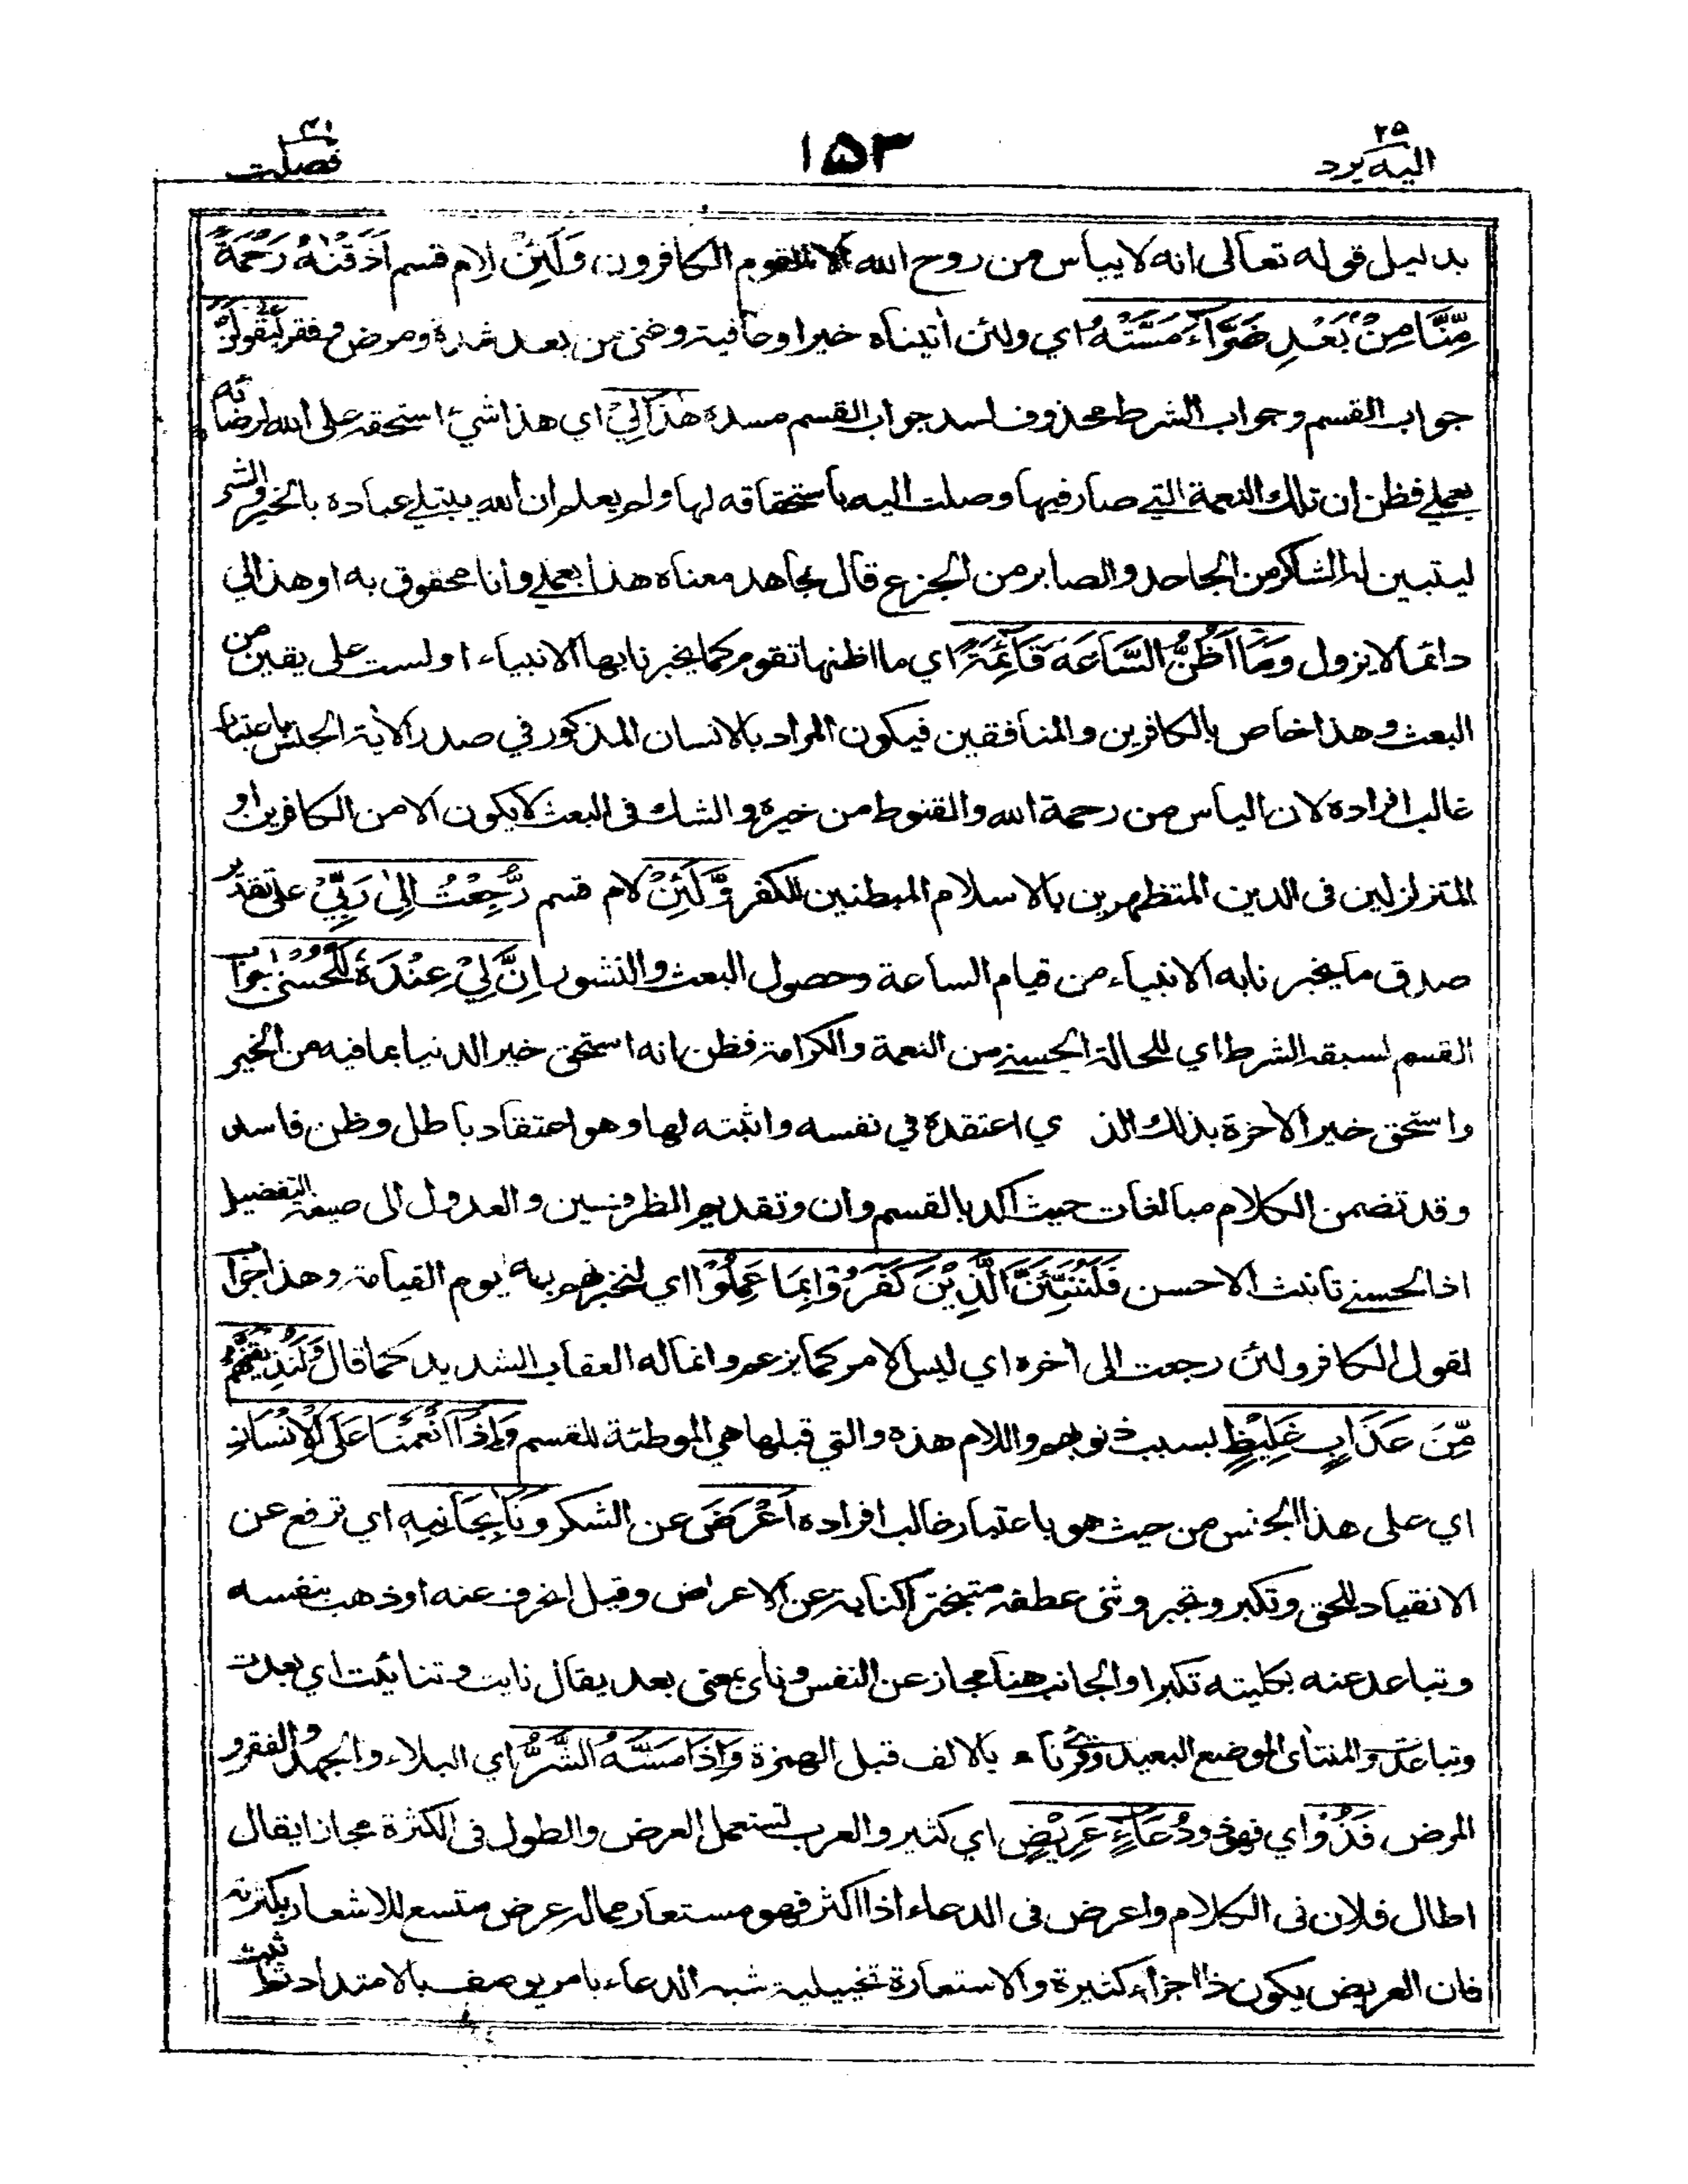 اليه يرد ٢٥
١٥٣
فصلت ٤١
بدليل قوله تعالى انه لا ييأس من روح الله الا القوم الكافرون وَلَئِنْ لام قسم اَذَقْنٰهُ رَحْمَةً
مِّنَّا مِنْۢ بَعْدِ ضَرَّآءَ مَسَّتْهُ اي ولئن أتيناه خيرا وعافية وغنى من بعد شدة ومرض وفقر لَيَقُوْلَنَّ
جواب القسم وجواب الشرط محذوف لسد جواب القسم مسده هٰذَا لِيْ اي هذا شيء استحقه على الله لرضائه
بعملي فظن ان تلك النعمة التي صار فيها وصلت اليه باستحقاقه لها ولم يعلم ان الله يبتلي عباده بالخير والشر
ليتبين له الشاكر من الجاحد والصابر من الجزع قال مجاهد معناه هذا بعملي وانا محقوق به او هذا لي
دائما لا يزول وَمَآ اَظُنُّ السَّاعَةَ قَآئِمَةً اي ما اظنها تقوم كما يخبرنا بها الانبياء او لست على يقين من
البعث وهذا خاص بالكافرين والمنافقين فيكون المراد بالانسان المذكور في صدر الآية الجنس باعتبار
غالب افراده لان اليأس من رحمة الله والقنوط من خيره والشك في البعث لا يكون الا من الكافرين او
المتزلزلين في الدين المتظهرين بالاسلام المبطنين للكفر وَّلَئِنْ لام قسم رُّجِعْتُ اِلٰى رَبِّيْ على تقدير
صدق ما يخبرنا به الانبياء من قيام الساعة وحصول البعث والنشور اِنَّ لِيْ عِنْدَهٗ لَلْحُسْنٰى جواب
القسم لسبقه الشرط اي للحالة الحسنى من النعمة والكرامة فظن انه استحق خير الدنيا بما فيه من الخير
واستحق خير الآخرة بذلك الذي اعتقده في نفسه واثبته لها وهو اعتقاد باطل وظن فاسد
وقد تضمن الكلام مبالغات حيث اكد بالقسم وان وتقديم الظرفين والعدول الى صيغة التفضيل
اذ الحسنى تانيث الاحسن فَلَنُنَبِّئَنَّ الَّذِيْنَ كَفَرُوْا بِمَا عَمِلُوْا اي لنخبرنهم به يوم القيامة وهذا جواب
لقول الكافر ولئن رجعت الى أخره اي ليس الامر كما يزعم وانما له العقاب الشديد كما قال وَلَنُذِيْقَنَّهُمْ
مِّنْ عَذَابٍ غَلِيْظٍ بسبب ذنوبهم واللام هذه والتي قبلها هي الموطئة للقسم وَاِذَآ اَنْعَمْنَا عَلَى الْاِنْسَانِ
اي على هذا الجنس من حيث هو باعتبار غالب افراده اَعْرَضَ عن الشكر وَنَاٰ بِجَانِبِهٖ اي ترفع عن
الانقياد للحق وتكبر وتجبر وثنى عطفه متبخترا كناية عن الاعراض وقيل انحرف عنه او ذهب بنفسه
وتباعد عنه بكليته تكبرا والجانب هنا مجاز عن النفس ونأى بمعنى بعد يقال نايت وتنائيت اي بعدت
وتباعدت والمنتأى الموضع البعيد وقرئ ناء بالالف قبل الهمزة وَاِذَا مَسَّهُ الشَّرُّ اي البلاء والجهد والفقر و
المرض فَذُوْ اي فهو ذو دُعَآءٍ عَرِيْضٍ اي كثير والعرب تستعمل العرض والطول في الكثرة مجازا يقال
اطال فلان في الكلام واعرض في الدعاء اذا اكثر فهو مستعار مما له عرض متسع للاشعار بكثرته
فان العريض يكون ذا اجزاء كثيرة والاستعارة تخييلية شبه الدعاء بامر يوصف بالامتداد ثم اثبت